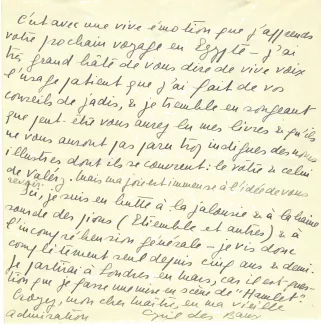 C'est avec une vive émotion que j'apprends
votre prochain voyage en Egypte – j'ai
très grand hâte de vous dire de vive voix
l'usage patient que j'ai fait de vos
conseils de jadis, & je tremble en songeant
que peut-être vous aurez lu mes livres & qu'ils
ne vous auront pas paru trop indignes des noms
illustres dont ils se couvrent : le vôtre & celui
de Valéry. Mais ma joie est immense à l'idée de vous
revoir.
Ici, je suis en butte à la jalousie & à la haine
sourde des pions (Etiemble et autres) & à
l'incompréhension générale – je vis donc
complètement seul depuis cinq ans & demi.
Je partirai à Londres en mars, car il est ques-
tion que je fasse une mise en scène de "Hamlet".
Croyez, mon cher maître, en ma vieille
admiration